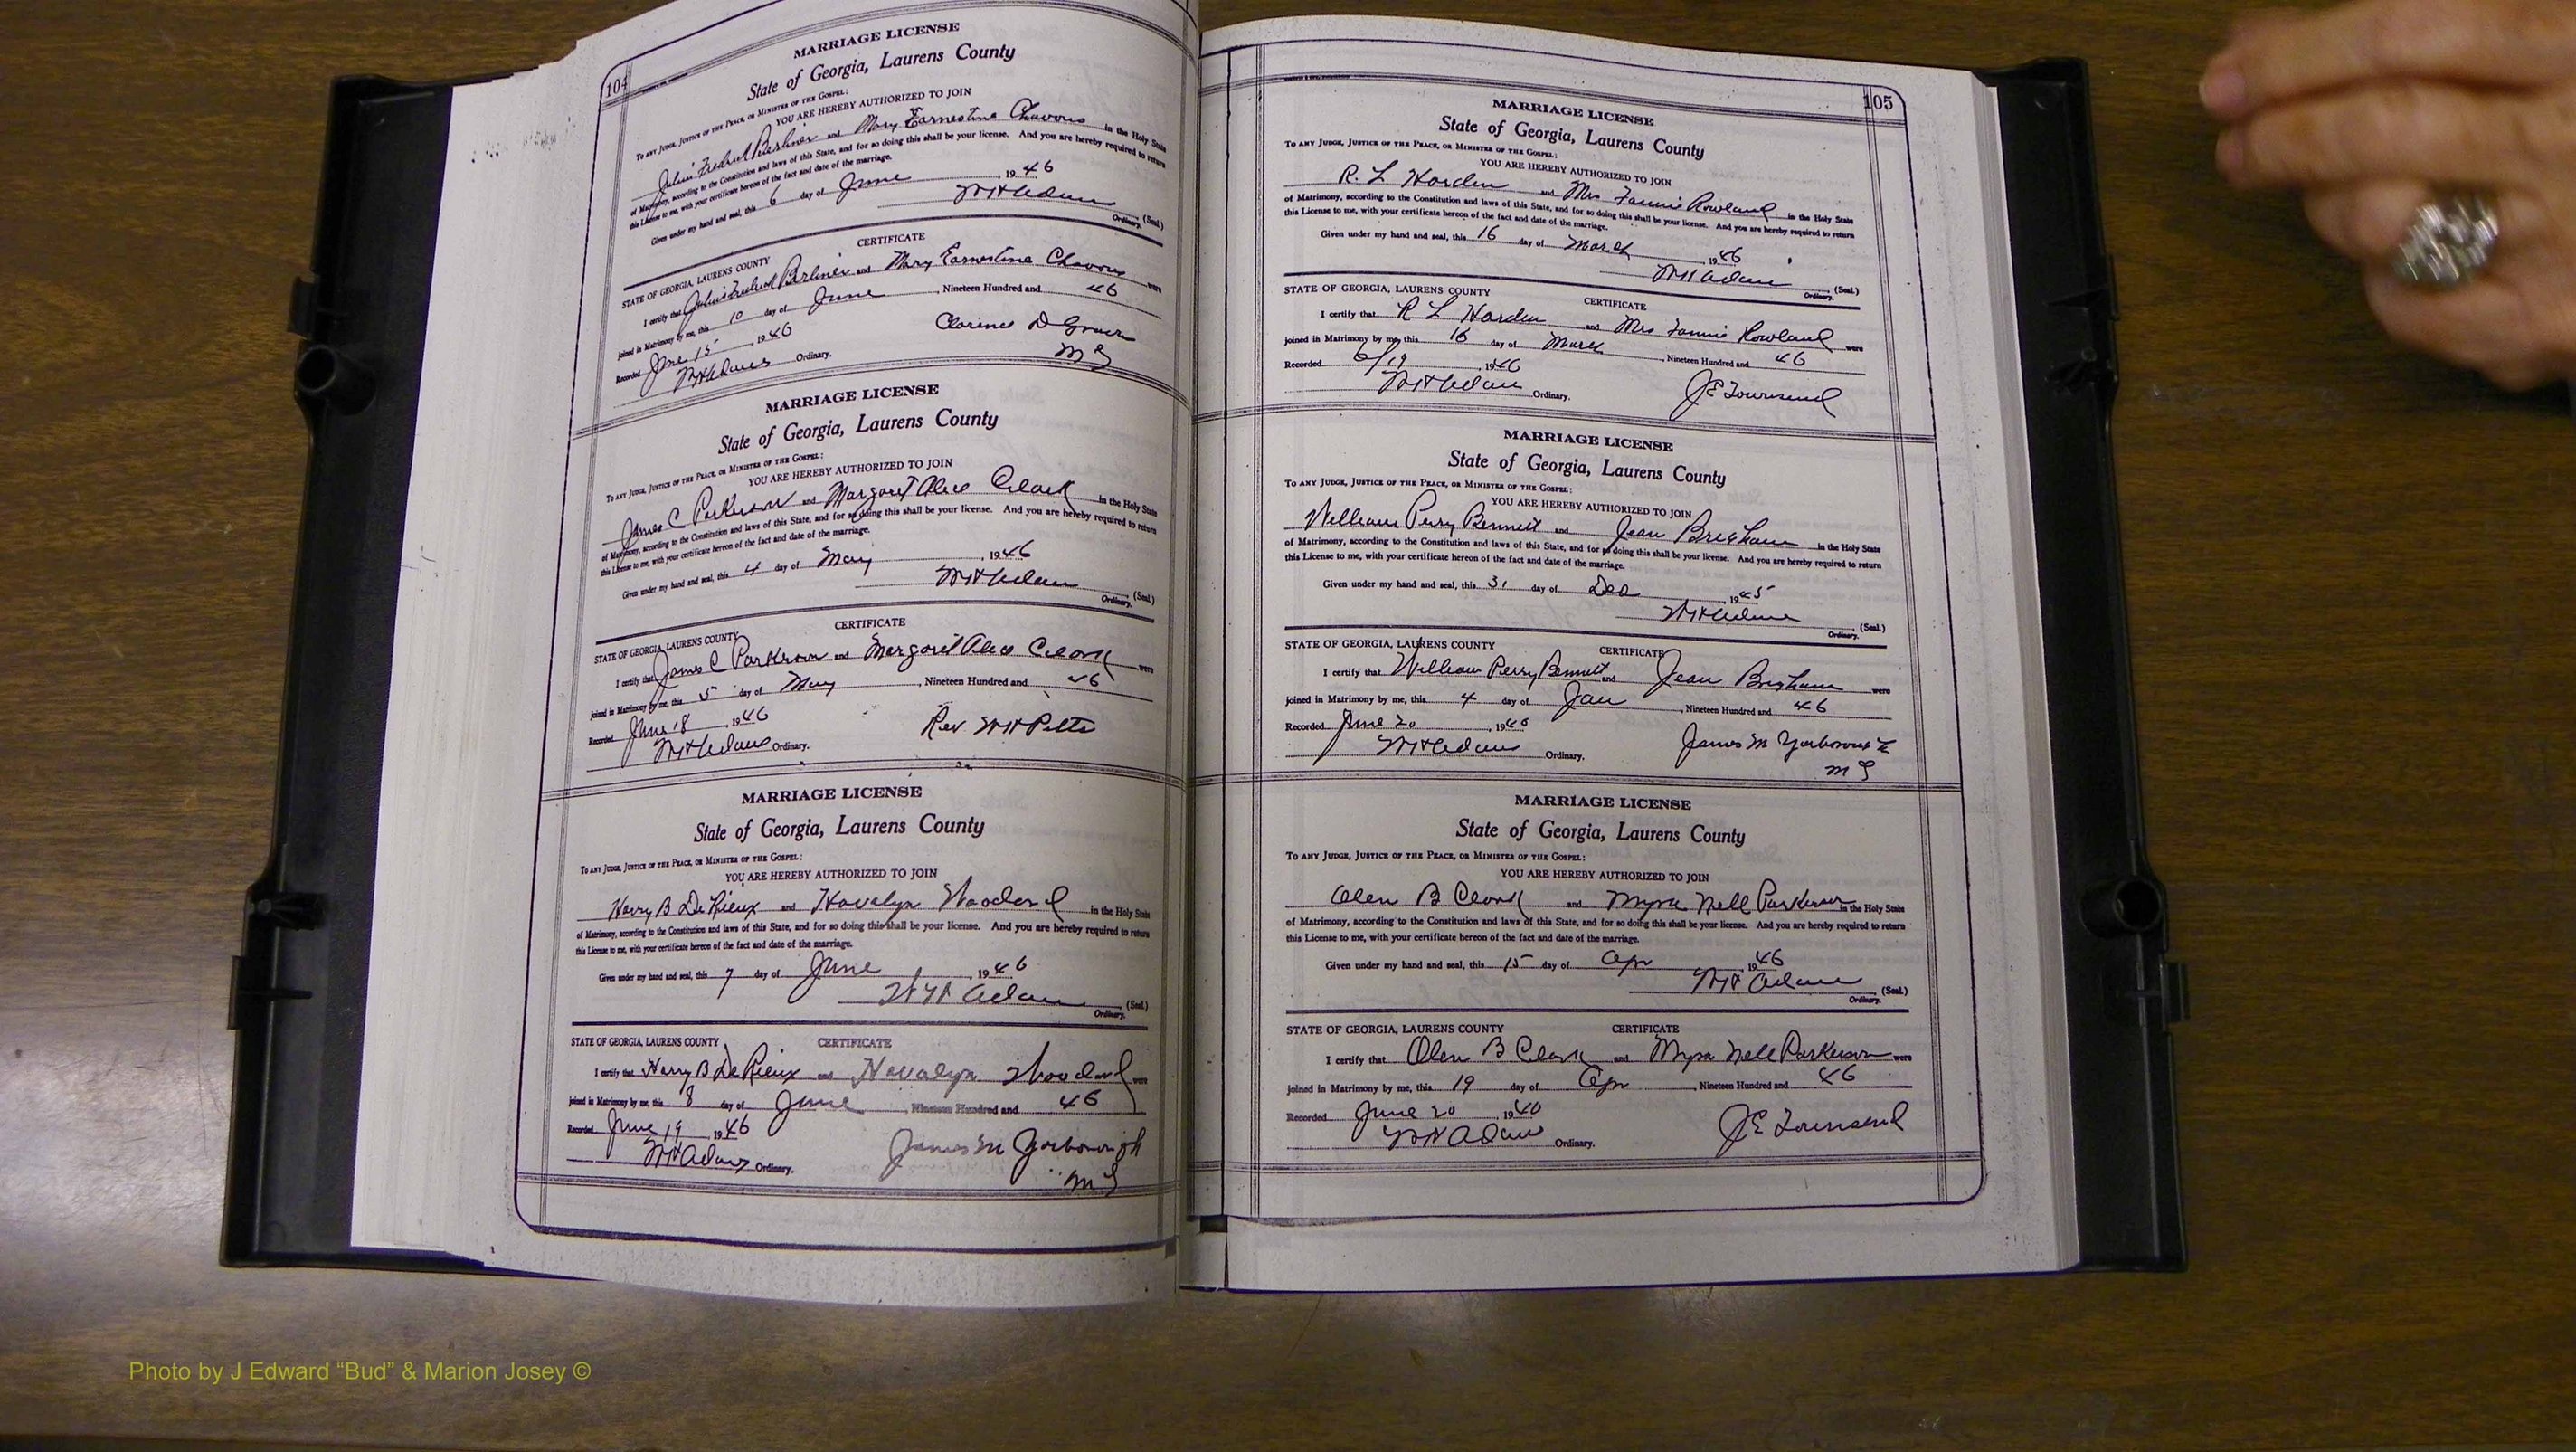 104
MARRIAGE LICENSE
State of Georgia, Laurens County
TO ANY JUDGE, JUSTICE OF THE PEACE, OR MINISTER OF THE GOSPEL:
YOU ARE HEREBY AUTHORIZED TO JOIN
Berliner and Mary Earnestine Chavous in the Holy State
of Matrimony, according to the Constitution and laws of this State, and for so doing this shall be your license. And you are hereby required to return
this License to me, with your certificate hereon of the fact and date of the marriage.
Given under my hand and seal, this 6 day of June, 1946
W H Adams (Seal.)
Ordinary.
CERTIFICATE
STATE OF GEORGIA, LAURENS COUNTY
I certify that Berliner and Mary Earnestine Chavous were
joined in Matrimony by me, this 10 day of June, Nineteen Hundred and 46
Recorded June 15, 1946
Clarence D
W H Adams Ordinary.
M G
MARRIAGE LICENSE
State of Georgia, Laurens County
TO ANY JUDGE, JUSTICE OF THE PEACE, OR MINISTER OF THE GOSPEL:
YOU ARE HEREBY AUTHORIZED TO JOIN
James C Parkerson and Margaret Alice Clark in the Holy State
of Matrimony, according to the Constitution and laws of this State, and for so doing this shall be your license. And you are hereby required to return
this License to me, with your certificate hereon of the fact and date of the marriage.
Given under my hand and seal, this 4 day of May, 1946
W H Adams (Seal.)
Ordinary.
CERTIFICATE
STATE OF GEORGIA, LAURENS COUNTY
I certify that James C Parkerson and Margaret Alice Clark were
joined in Matrimony by me, this 5 day of May, Nineteen Hundred and 46
Recorded June 18, 1946
Rev. W H
W H Adams Ordinary.
MARRIAGE LICENSE
State of Georgia, Laurens County
TO ANY JUDGE, JUSTICE OF THE PEACE, OR MINISTER OF THE GOSPEL:
YOU ARE HEREBY AUTHORIZED TO JOIN
Harry B DeRieux and Woodard in the Holy State
of Matrimony, according to the Constitution and laws of this State, and for so doing this shall be your license. And you are hereby required to return
this License to me, with your certificate hereon of the fact and date of the marriage.
Given under my hand and seal, this 7 day of June, 1946
W H Adams (Seal.)
Ordinary.
STATE OF GEORGIA, LAURENS COUNTY CERTIFICATE
I certify that Harry B DeRieux and Woodard were
joined in Matrimony by me, this 8 day of June, Nineteen Hundred and 46
Recorded June 19, 1946
James M Yarborough
W H Adams Ordinary.
M G
105
MARRIAGE LICENSE
State of Georgia, Laurens County
TO ANY JUDGE, JUSTICE OF THE PEACE, OR MINISTER OF THE GOSPEL:
YOU ARE HEREBY AUTHORIZED TO JOIN
R. L Horden and Mrs Fannie Rowland in the Holy State
of Matrimony, according to the Constitution and laws of this State, and for so doing this shall be your license. And you are hereby required to return
this License to me, with your certificate hereon of the fact and date of the marriage.
Given under my hand and seal, this 16 day of March, 1946
W H Adams (Seal.)
Ordinary.
STATE OF GEORGIA, LAURENS COUNTY CERTIFICATE
I certify that R L Horden and Mrs Fannie Rowland were
joined in Matrimony by me, this 16 day of March, Nineteen Hundred and 46
Recorded 6/19, 1946
W H Adams Ordinary.
J E Townsend
MARRIAGE LICENSE
State of Georgia, Laurens County
TO ANY JUDGE, JUSTICE OF THE PEACE, OR MINISTER OF THE GOSPEL:
YOU ARE HEREBY AUTHORIZED TO JOIN
William Perry Bennett and Jean Brigham in the Holy State
of Matrimony, according to the Constitution and laws of this State, and for so doing this shall be your license. And you are hereby required to return
this License to me, with your certificate hereon of the fact and date of the marriage.
Given under my hand and seal, this 31 day of Dec, 1945
W H Adams (Seal.)
Ordinary.
STATE OF GEORGIA, LAURENS COUNTY CERTIFICATE
I certify that William Perry Bennett and Jean Brigham were
joined in Matrimony by me, this 4 day of Jan, Nineteen Hundred and 46
Recorded June 20, 1946
W H Adams Ordinary.
James M Yarborough
M G
MARRIAGE LICENSE
State of Georgia, Laurens County
TO ANY JUDGE, JUSTICE OF THE PEACE, OR MINISTER OF THE GOSPEL:
YOU ARE HEREBY AUTHORIZED TO JOIN
Olen B Clark and Myra Nell Parkerson in the Holy State
of Matrimony, according to the Constitution and laws of this State, and for so doing this shall be your license. And you are hereby required to return
this License to me, with your certificate hereon of the fact and date of the marriage.
Given under my hand and seal, this 15 day of Apr, 1946
W H Adams (Seal.)
Ordinary.
STATE OF GEORGIA, LAURENS COUNTY CERTIFICATE
I certify that Olen B Clark and Myra Nell Parkerson were
joined in Matrimony by me, this 19 day of Apr, Nineteen Hundred and 46
Recorded June 20, 1946
W H Adams Ordinary.
J E Townsend
Photo by J Edward “Bud” & Marion Josey ©